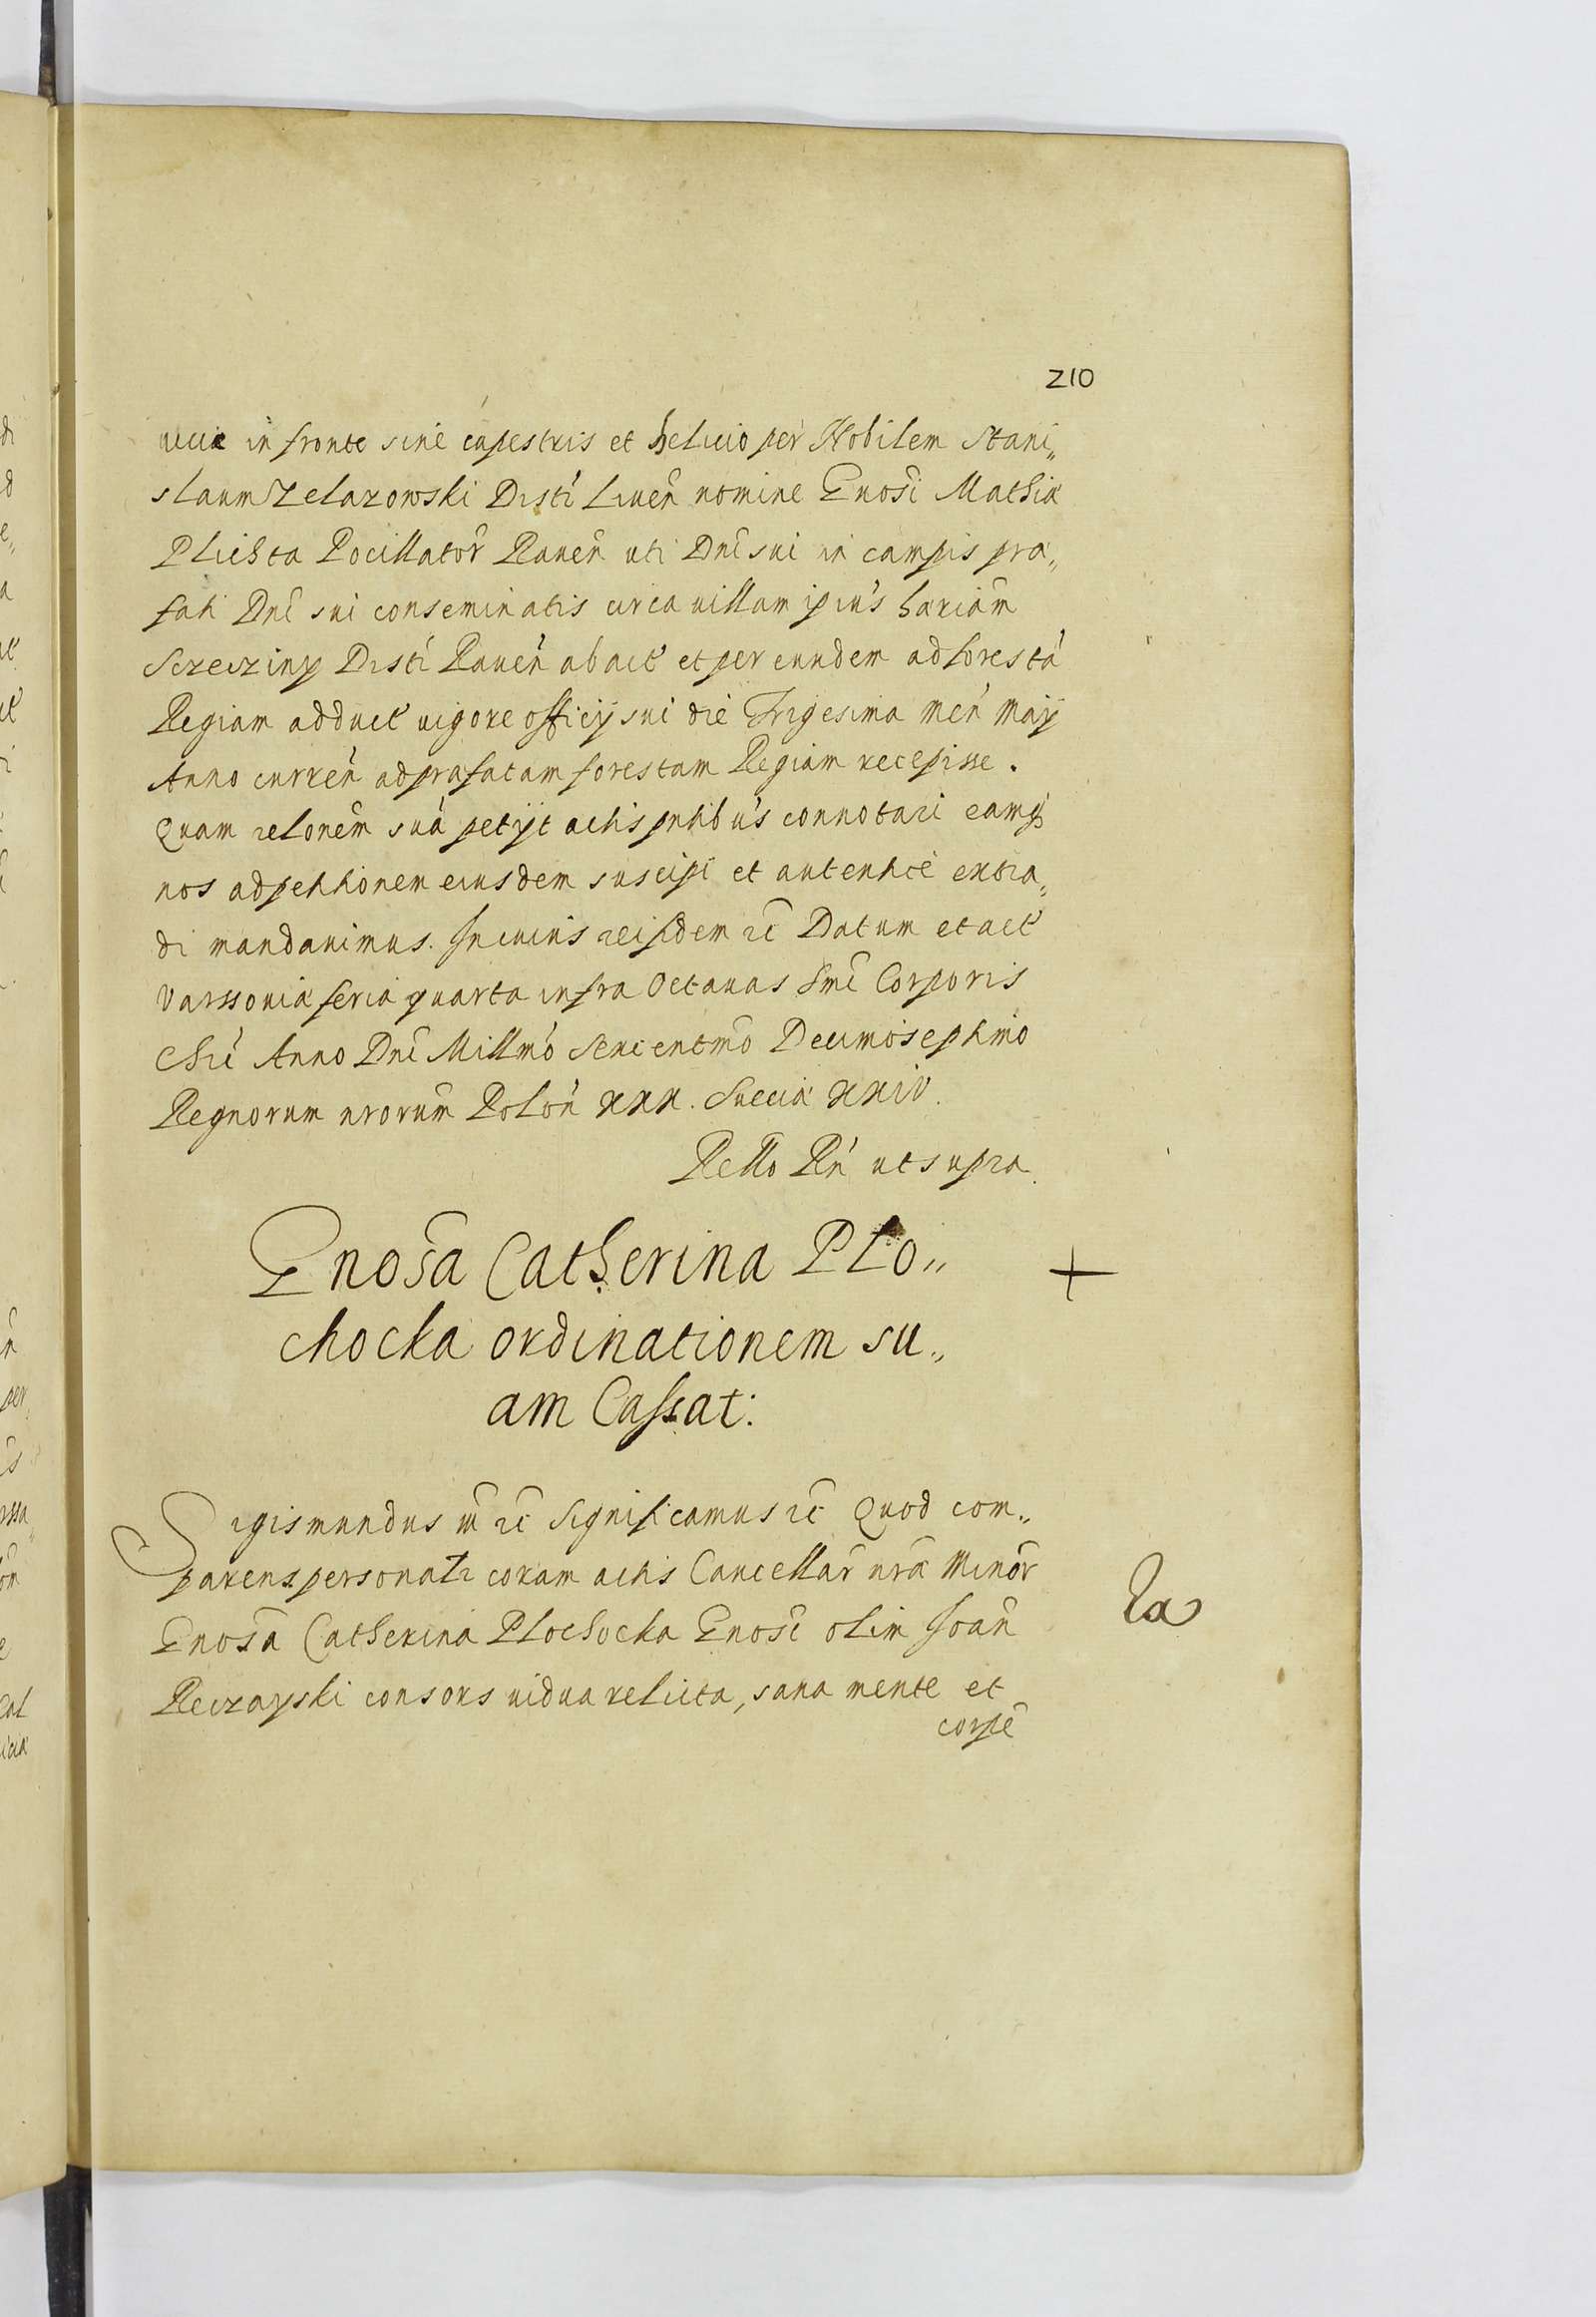 210
in fronte sine capestris et helicio per Nobilem Stani„
slaum Zelazowski Disti Liuen̄ nomine Gnosi Mathiæ
Plichta Pocillator̄ Rauen̄ uti Dn̄i sui in campis præ„
fati Dn̄i sui conseminatis circa uillam ipius hæriam̄
Disti Rauen̄ abact et per eundem ad forestā
Regiam adduct uigore officÿ sui die Trigesima men̄ Maÿ
Anno curren̄ ad præfatam forestam Regiam recepisse.
Quam relonem̄ suā petÿt actis pntibus connotari eamq
nos ad petitionem eiusdem suscipi et autentice extra„
di mandauimus. In cuius rei fidem rc̄ Datum et act
Varssouiæ feria quarta infra Octauas Smi Corporis
Chri Anno Dn̄i Millmo Sexcentmo Decimoseptimo
Regnorum nrorum̄ Polon̄ xxx. Sueciæ xxiv.
Rello Rn̄ ut supra
Gnosa Catherina Plo„
chocka ordinationem su„
am Cassat.
Sigismundus III rc̄ Significamus rc̄ Quod com„
parens personatr coram actis Cancellar̄ nræ Minor̄
Gnosa Catherina Plochocka Gnosi olim Joan̄
Reczayski consors uidua relicta, sana mente et
corpe